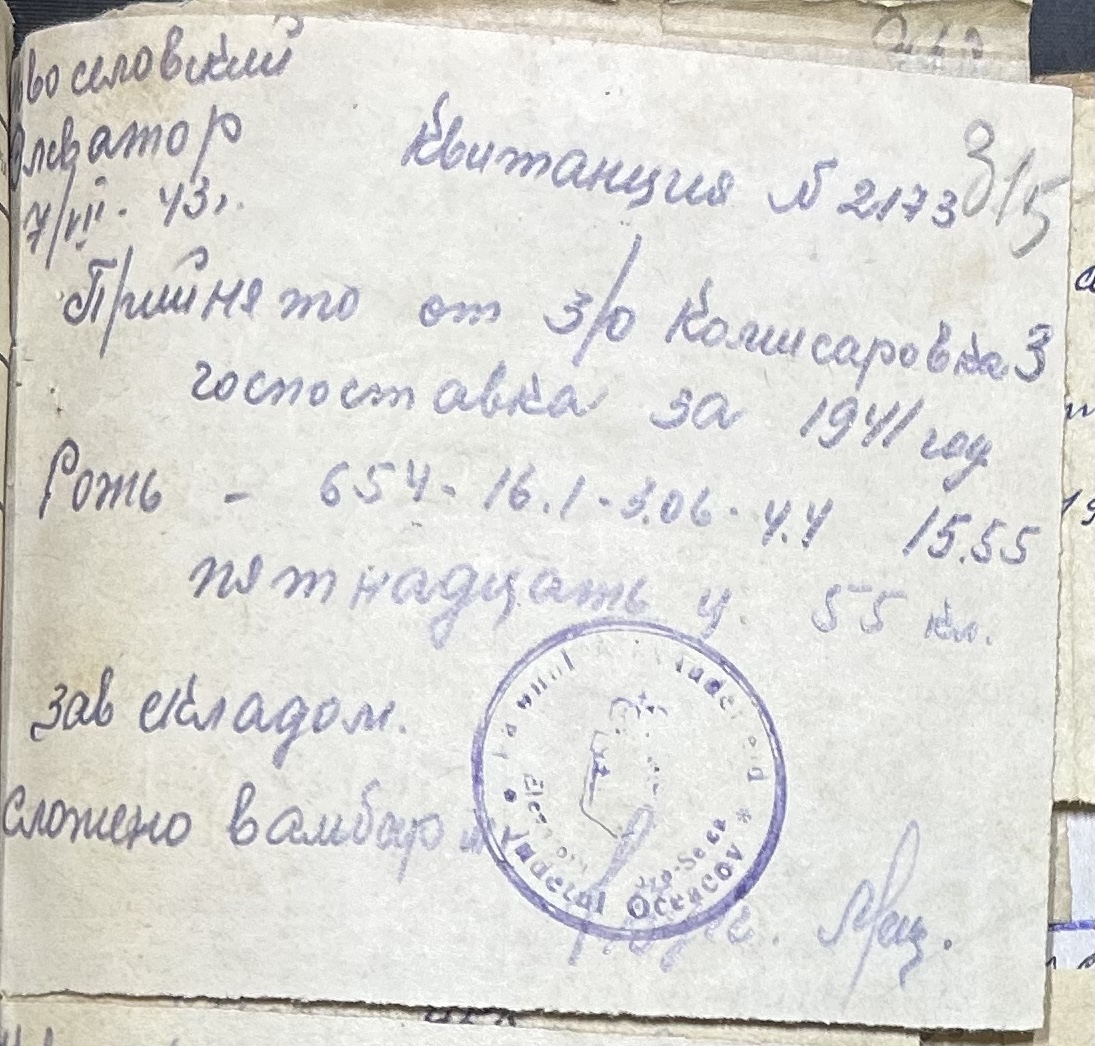 воселовский
Элеватор
7/III. 43г.
Квитанция N 2173
315
Прийнято от з/о Комисаровка 3
госпоставка за 1941 год
Рожь - 654 - 16.1 - 3.06 - 4.4 15.55
пятнадцать ц. 55 кл.
зав складом.
Сложено в амбар
Judetul Oceacov *